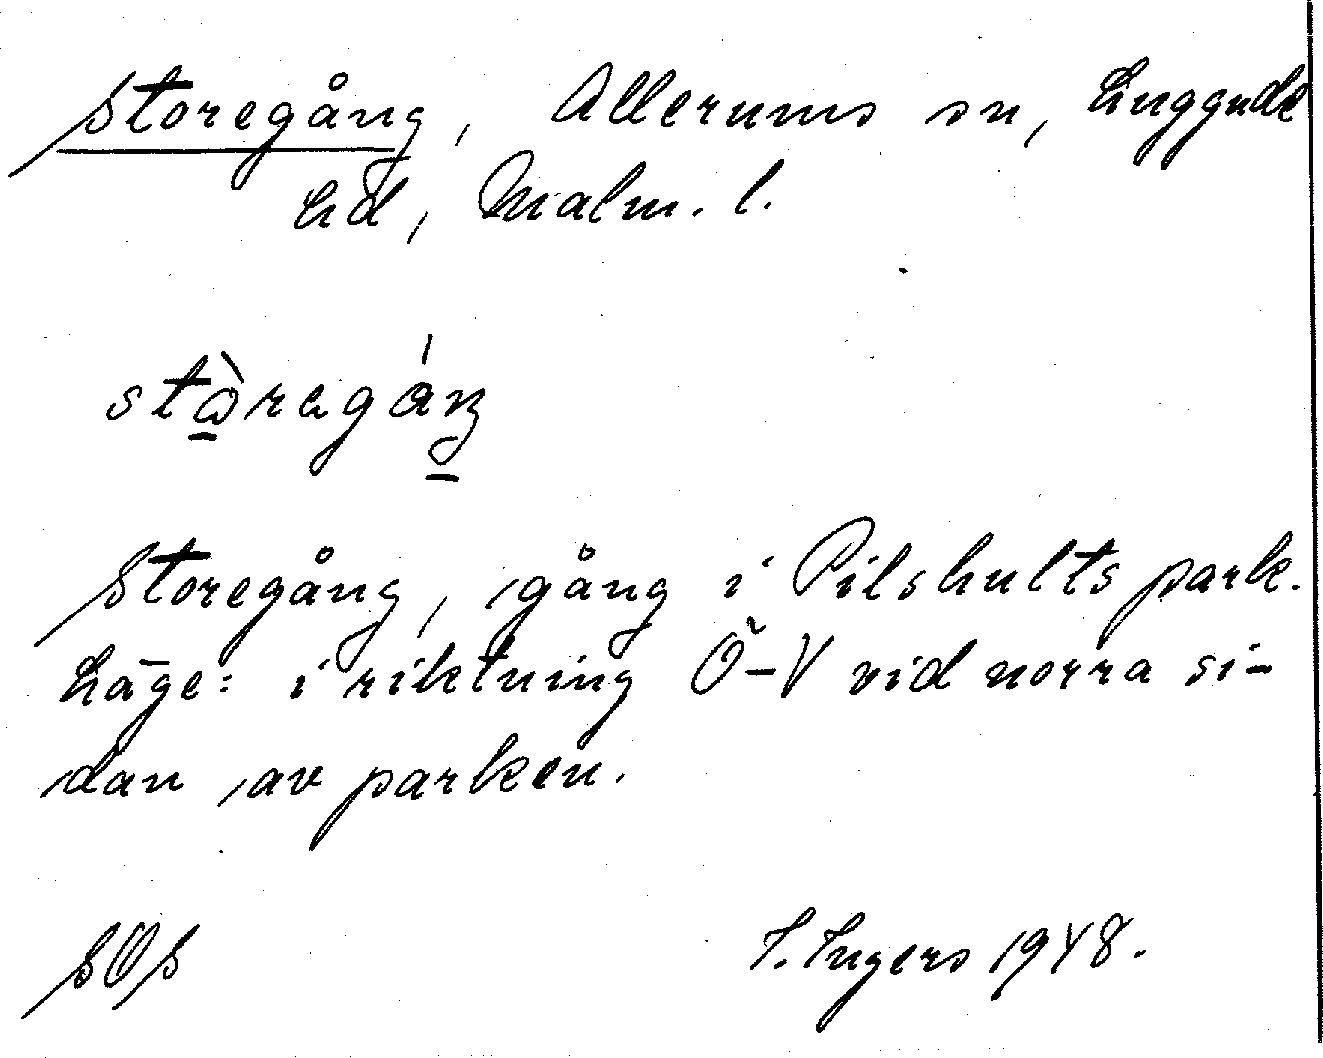 Storegång, Allerums sn, Luggude
hd, Malm. l.
Storegång, gång i Pilshults park.
Läge: i riktning Ö–V vid norra si-
dan av parken.
SOS
I. Ingers 1948.